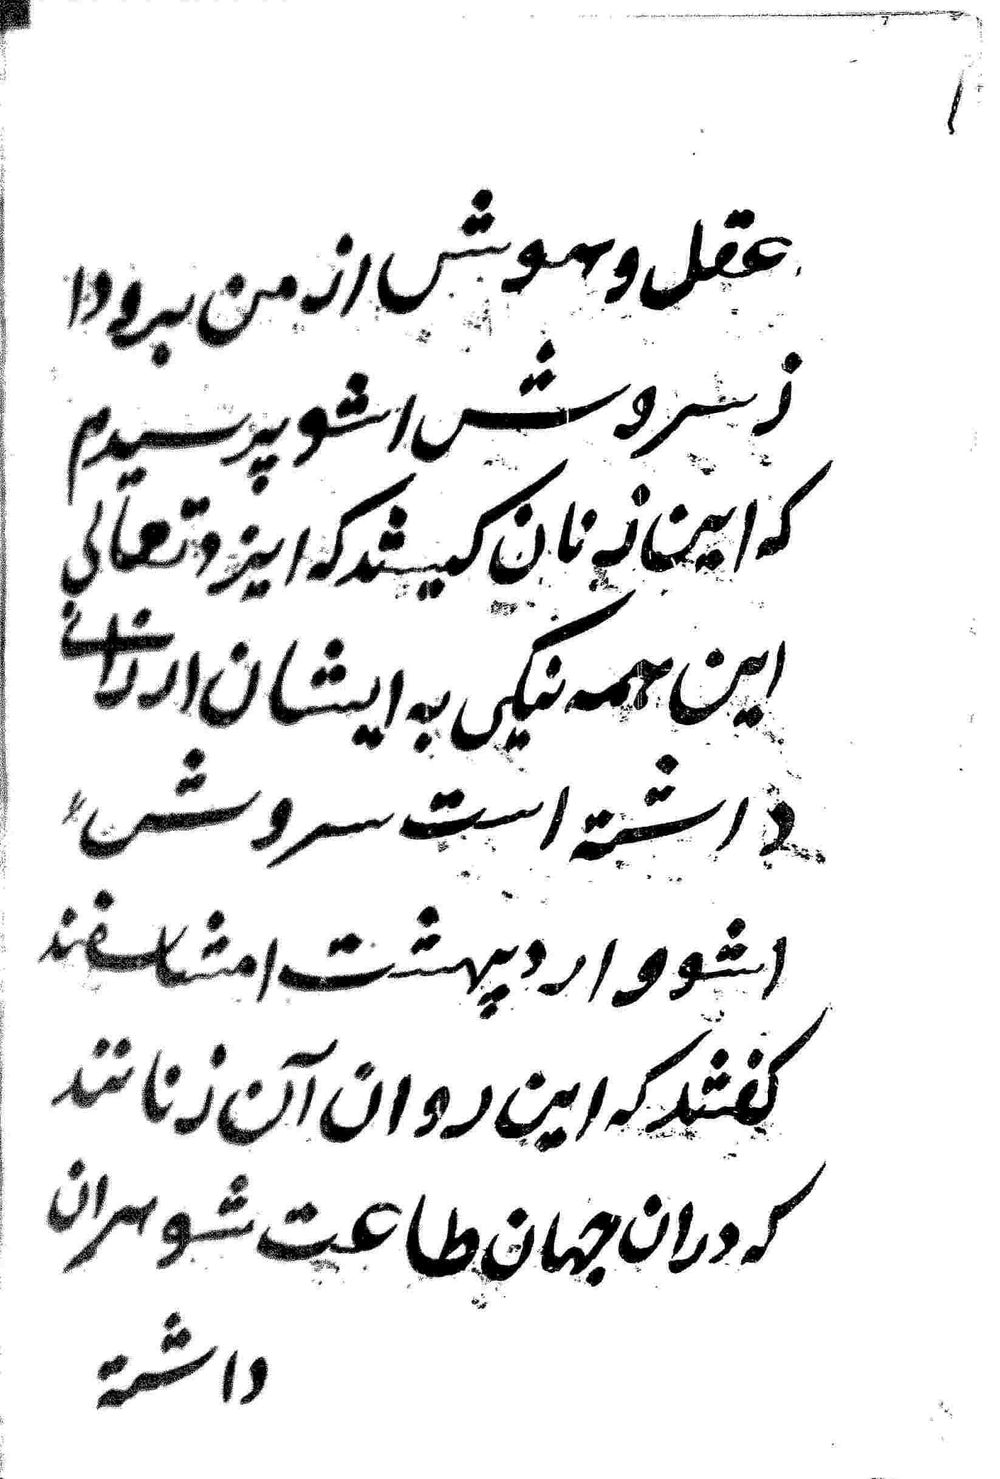 عقل و هوش از من برود ا
ز سروش اشو پرسیدم
که این زنان کیستند که ایزد تعالی
این همه نیکی به ایشان ارزانی
داشته است سروش
اشو و اردیبهشت امشاسفند
گفتند که این روان آن زنانند
که دران جهان طاعت شوهران
داشته